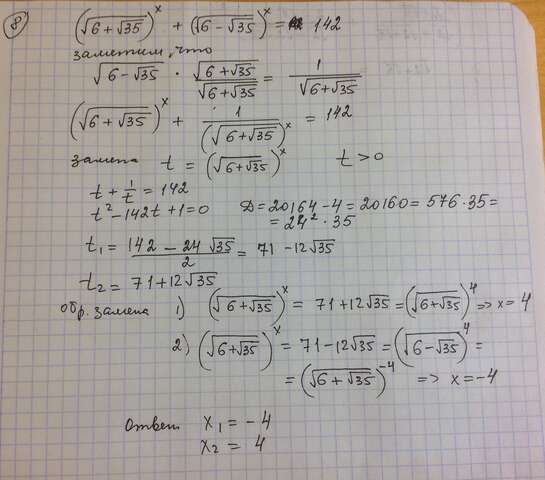 8) (√(6+√35))^x + (√(6-√35))^x = 142
заметим, что
√(6-√35) · √(6+√35)/√(6+√35) = 1/√(6+√35)
(√(6+√35))^x + 1/(√(6+√35))^x = 142
замена t = (√(6+√35))^x t > 0
t + 1/t = 142
t² - 142t + 1 = 0 D = 20164 - 4 = 20160 = 576 · 35 =
= 24² · 35
t₁ = (142 - 24√35)/2 = 71 - 12√35
t₂ = 71 + 12√35
обр. замена 1) (√(6+√35))^x = 71 + 12√35 = (√(6+√35))^4 => x = 4
2) (√(6+√35))^x = 71 - 12√35 = (√(6-√35))^4 =
= (√(6+√35))^-4 => x = -4
Ответ x₁ = -4
x₂ = 4